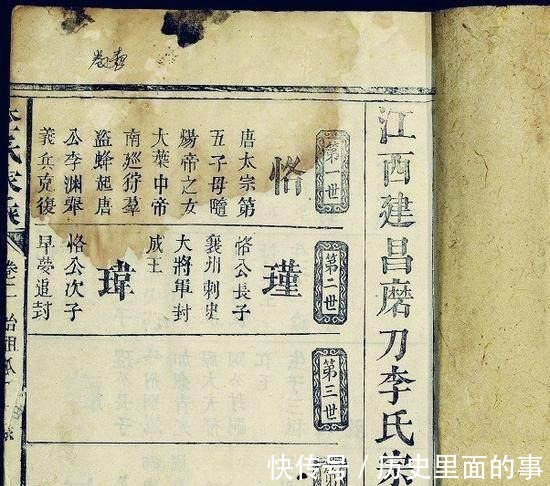 江西建昌磨刀李氏
第一世
恪
唐太宗第
五子母隨
煬帝之女
大葉中帝
南廵狩羣
盜蜂起唐
公李淵舉
義兵克復
第二世
瑾
恪公長子
襄州刺史
大將軍封
成王
瑋
恪公次子
早夢追封
第三世
快传号 / 历史里面的事